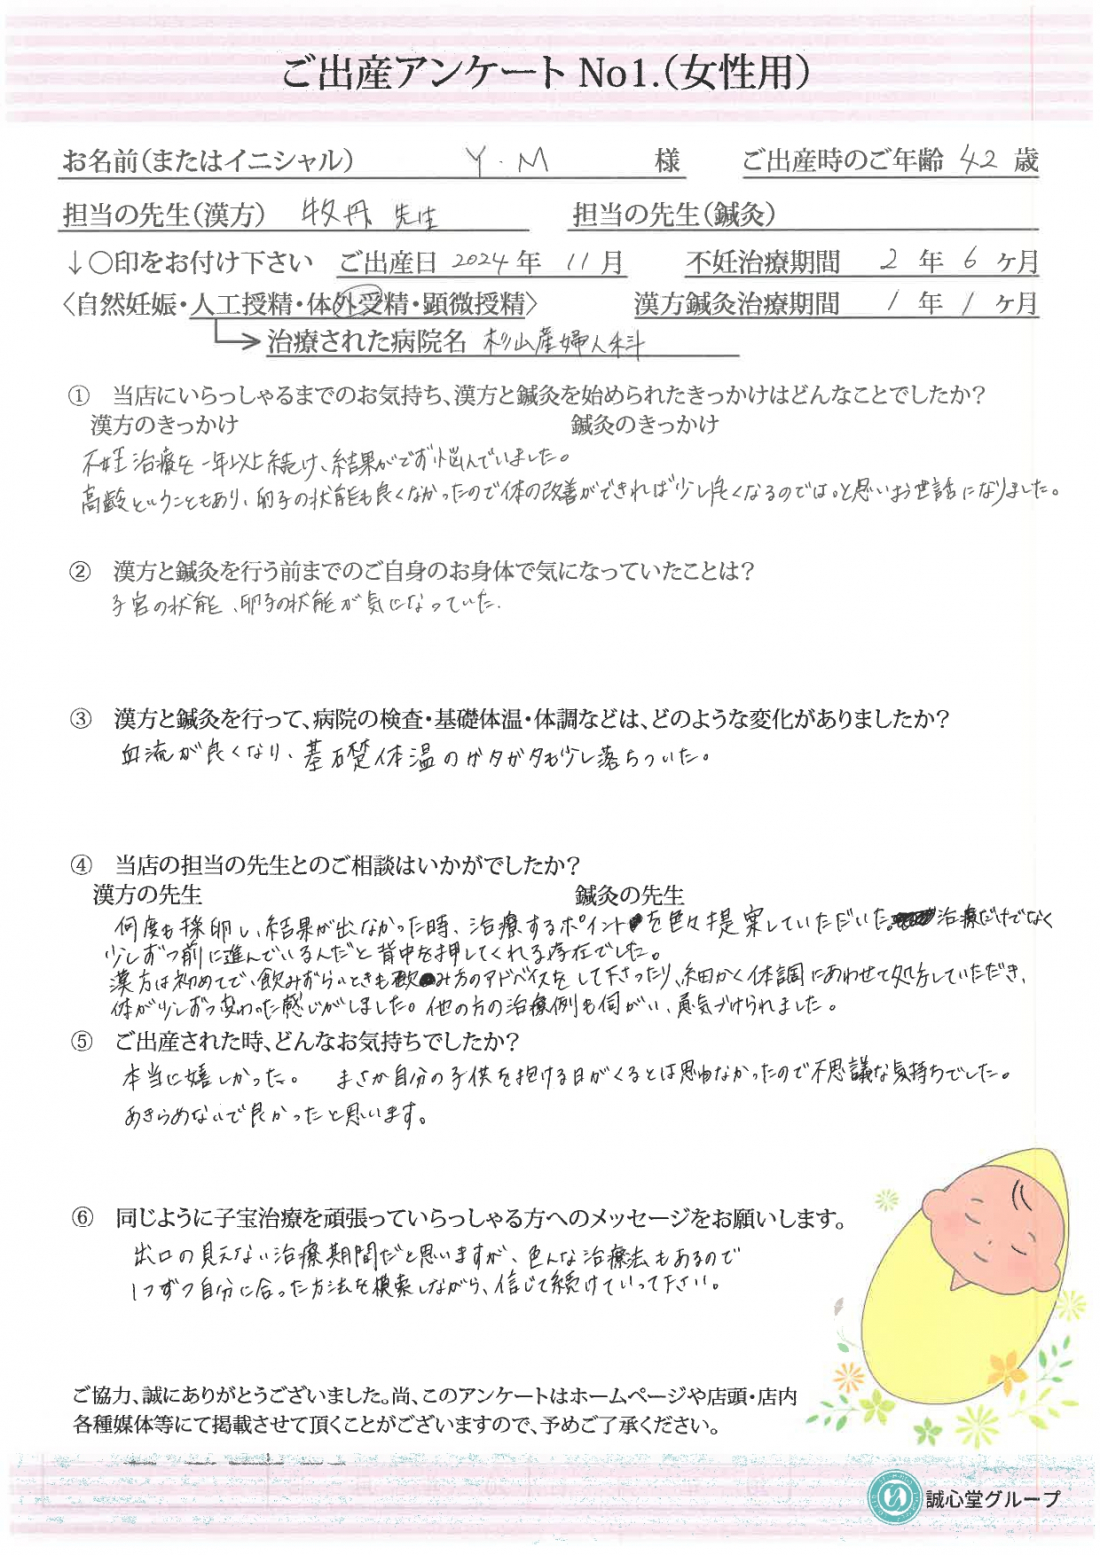 ご出産アンケート No1.(女性用)
お名前(またはイニシャル) Y.M 様 ご出産時のご年齢 42 歳
担当の先生(漢方) 牧丹 先生 担当の先生(鍼灸)
↓〇印をお付け下さい ご出産日 2024 年 11 月 不妊治療期間 2 年 6 ヶ月
〈自然妊娠・人工授精・体外受精・顕微授精〉 漢方鍼灸治療期間 1 年 1 ヶ月
治療された病院名 杉山産婦人科
① 当店にいらっしゃるまでのお気持ち、漢方と鍼灸を始められたきっかけはどんなことでしたか?
漢方のきっかけ 鍼灸のきっかけ
不妊治療を一年以上続け、結果がでず悩んでいました。
高齢ということもあり、卵子の状態も良くなかったので体の改善ができれば少し良くなるのでは。と思いお世話になりました。
② 漢方と鍼灸を行う前までのご自身のお身体で気になっていたことは?
子宮の状態、卵子の状態が気になっていた.
③ 漢方と鍼灸を行って、病院の検査・基礎体温・体調などは、どのような変化がありましたか?
血流が良くなり、基礎体温のガタガタも少し落ちついた。
④ 当店の担当の先生とのご相談はいかがでしたか?
漢方の先生 鍼灸の先生
何度も採卵し、結果が出なかった時、治療するポイントを色々提案していただいた。治療だけでなく
少しずつ前に進んでいるんだと背中を押してくれる存在でした。
漢方は初めてで、飲みずらいときも飲み方のアドバイスをして下さったり、細かく体調にあわせて処方していただき、
体が少しずつ変わった感じがしました。他の方の治療例も伺がい、勇気づけられました。
⑤ ご出産された時、どんなお気持ちでしたか?
本当に嬉しかった。 まさか自分の子供を抱ける日がくるとは思わなかったので不思議な気持ちでした。
あきらめないで良かったと思います。
⑥ 同じように子宝治療を頑張っていらっしゃる方へのメッセージをお願いします。
出口の見えない治療期間だと思いますが、色んな治療法もあるので
1つずつ自分に合った方法を模索しながら、信じて続けていって下さい。
ご協力、誠にありがとうございました。尚、このアンケートはホームページや店頭・店内
各種媒体等にて掲載させて頂くことがございますので、予めご了承ください。
誠心堂グループ